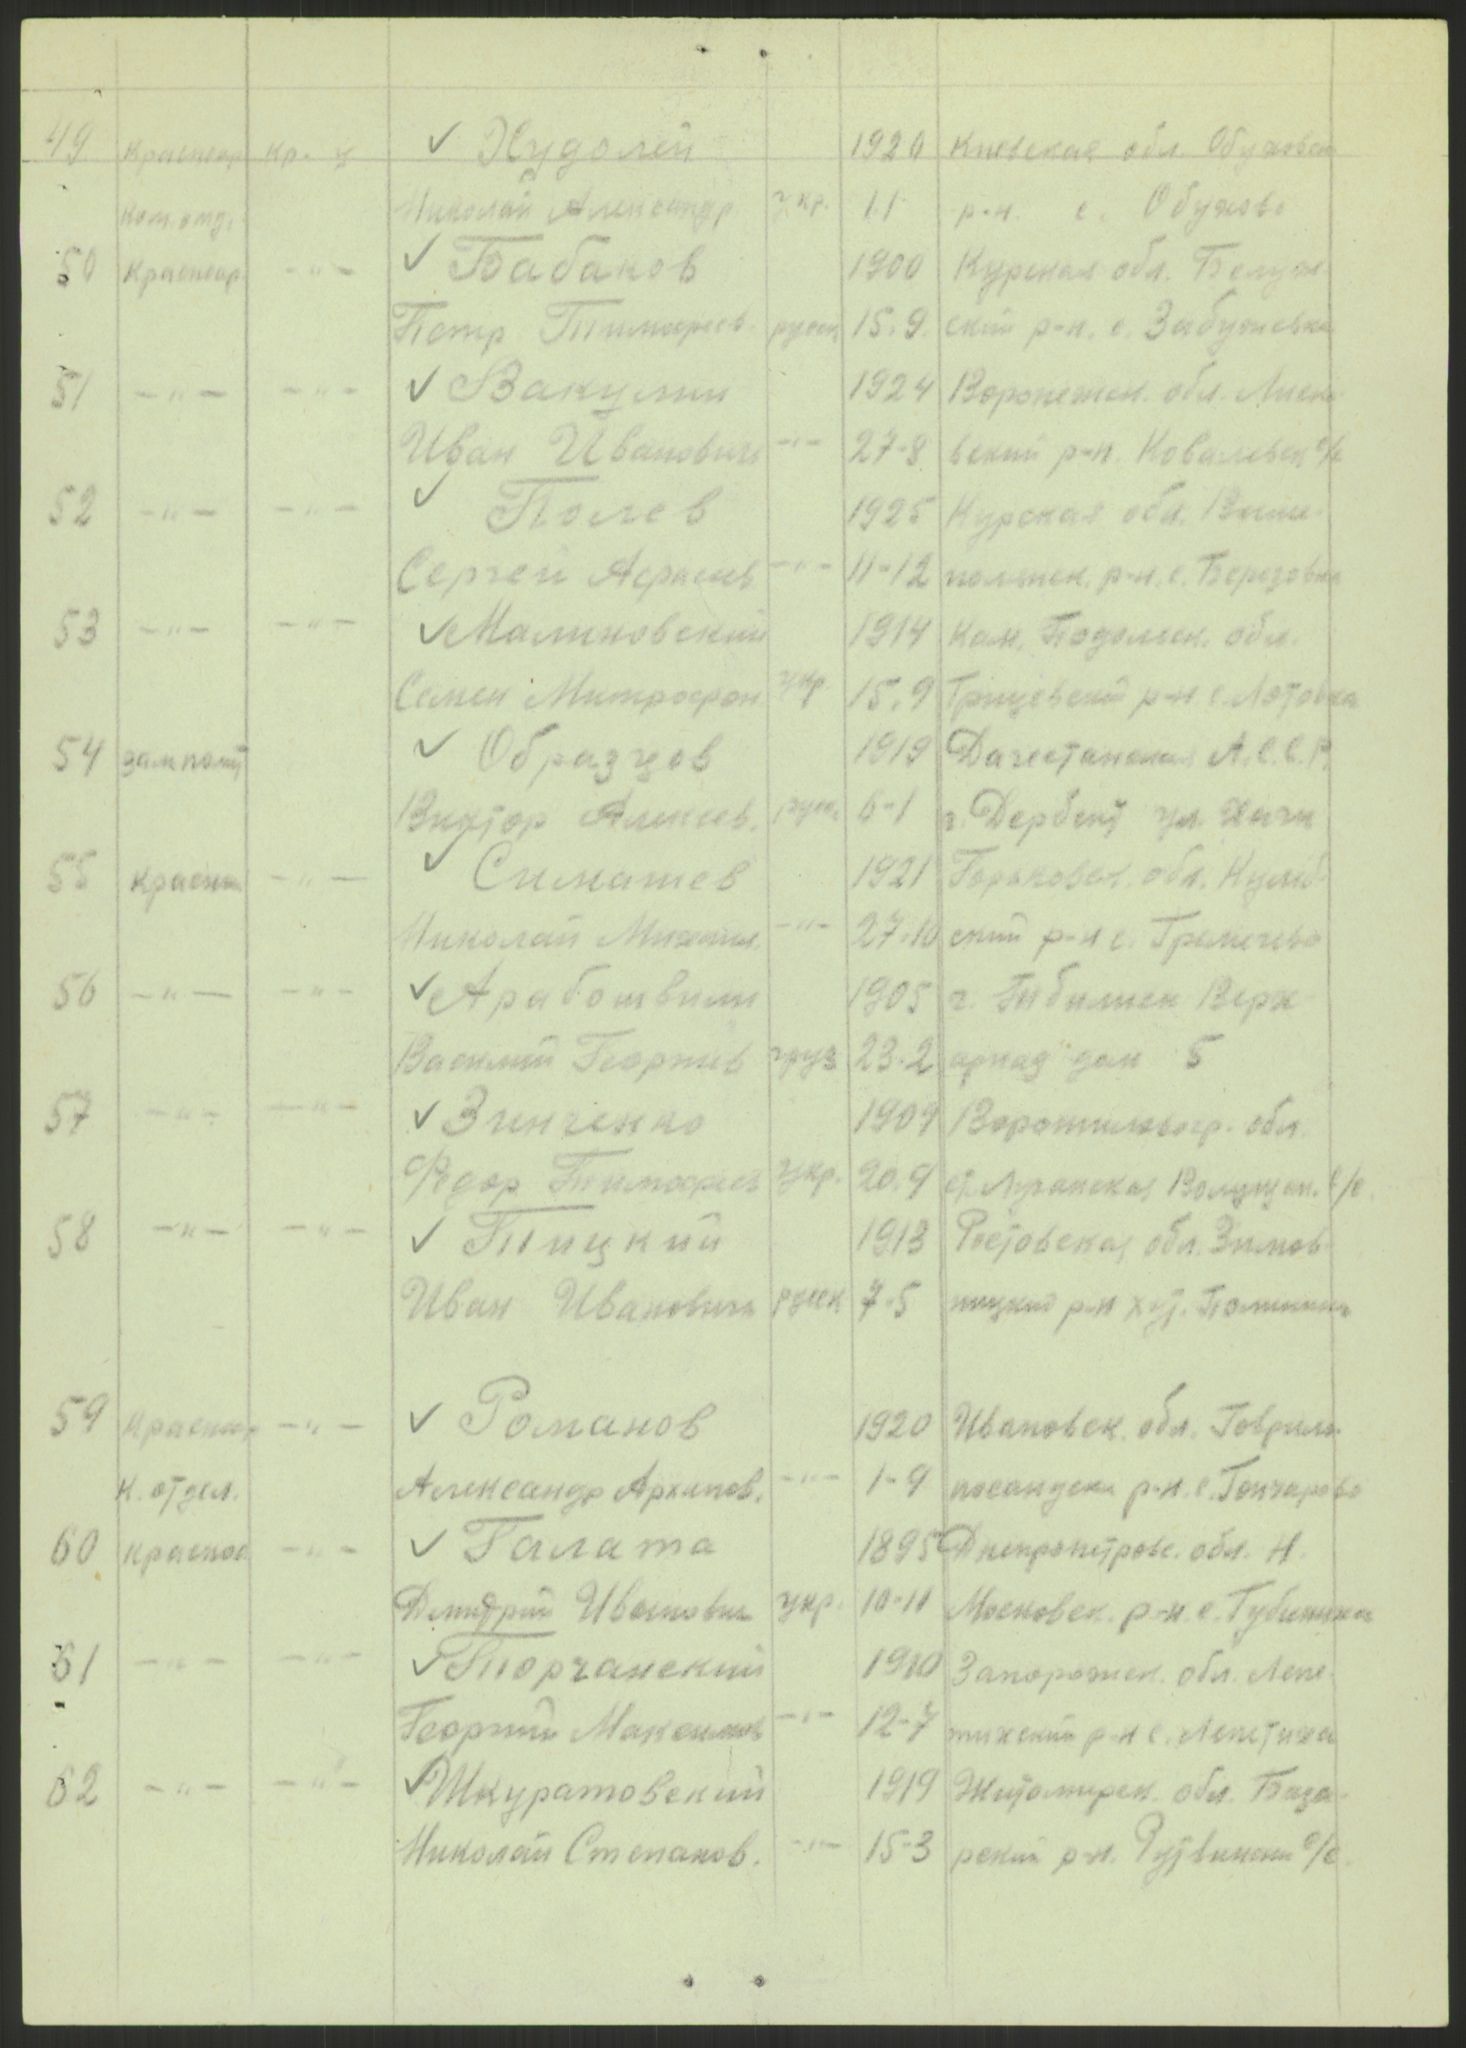 49 красноар. кр-ц ✓ Худолей 1920 Киевская обл. Обуховск
ком. отд. Николай Александр. укр. 1.1 р-н. с. Обухово
50 красноар. -"- ✓ Бабаков 1900 Курская обл.
Петр Тимофеев. русск 15.9. ский р-н. с.
51 -"- -"- ✓ Вакулин 1924 Воронежск. обл. Лиски
Иван Иванович -"- 27-8 вский р-н. Ковалевск с/с
52 -"- -"- ✓ Полев 1925 Курская обл.
Сергей -"- 11-12 р-н. с. Березовка
53 -"- -"- ✓ Малиновский 1914 Кам. Подольск. обл.
Семен Митрофан укр. 15.9 Грицевский р-н. с. Лотовка
54 замполит ✓ Образцов 1919 Дагестанская А.С.С.Р.
Виктор Алексеев. русск. 6-1 г. Дербент ул.
55 красно -"- ✓ Симашев 1921 Горьковск. обл.
Николай Михайл. -"- 27.10 ский р-н с. Гремячево
56 -"- -"- ✓ Арабошвили 1905 г. Тибилиси Верх
Василий Георгиев груз 23.2 дом 5
57 -"- -"- ✓ Зинченко 1909 Ворошиловгр. обл.
Федор Тимофеев укр. 20.9 с/с.
58 -"- -"- ✓ Тицкий 1913 Ростовская обл. Зимов
Иван Иванович русск 7-5 ницкий р-н хут.
59 Красноар -"- ✓ Романов 1920 Ивановск. обл. Гаврило-
к. отдел. Александр Архипов. -"- 1-9 посандский р-н. с. Гончарово
60 красноа -"- ✓ Галата 1895 Днепропетровс. обл. Н.
Дмитрий Иванович укр. 10-11 Московск. р-н. с. Губиниха
61 -"- -"- ✓ Торчанский 1910 Запорожск. обл. Лепе-
Георгий Максимов -"- 12-7 тихский р-н с. Лепетиха
62 -"- -"- ✓ Шкуратовский 1919 Житомирск. обл. База-
Николай Степанов. -"- 15-3 рский р-н. с/с.